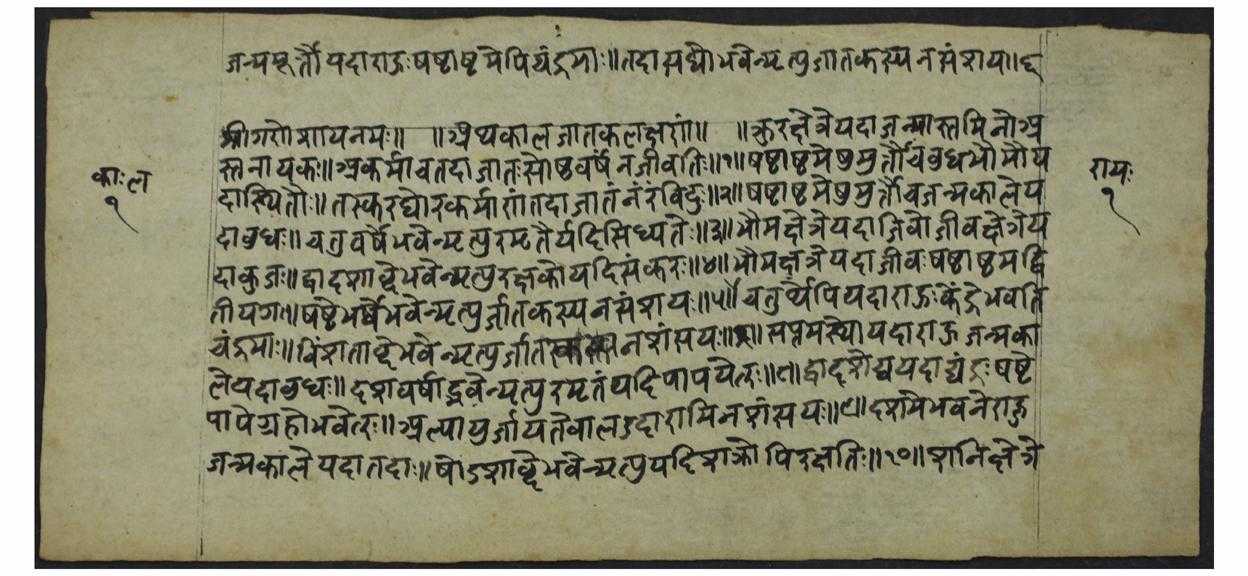 जन्ममूर्त्तौ यदा राऊः षष्टाष्टमे पि चंद्रमाः॥ तदा सद्यो भवेन्मृत्यु जातकस्य न संशय॥ ६
श्रीगणेशायनमः॥ ॥ अथ काल जातक लक्षणं॥ ॥ क्रुरक्षेत्रे यदा जन्मास्तमिनो अ
स्तनायकः॥ अकर्मा च तदा जातः सोष्टवर्षं न जीवति॥ १॥ षष्टाष्टमेषु मुर्तौ च बुधभौमौ य
दास्थितौः॥ तस्करघोरकर्माणां तदा जातं नंर विदुः॥ २॥ षष्टाष्टमेषु मुर्त्तौ च जन्मकाले य
दा बुधः॥ चतुवर्षे भवेन्मृत्यु रमृतैर्यदि सिध्यते॥ ३॥ भौमक्षेत्रे यदा जिवो जीवक्षेत्रे य
दा कुजः॥ द्वादशाब्दे भवेन्मृत्यु रक्षको यदि संकरः॥ ४॥ भौमक्षेत्रे यदा जीवः षष्टाष्टमद्वि
तीयग॥ षष्ठे भर्षे भवेन्मृत्यु र्जातकस्य न संशयः॥ ५॥ चतुर्थे पि यदा राऊः केंद्रे भवति
चंद्रमाः॥ विंशताब्दे भवेन्मृत्यु र्जातकस्य न शंसयः॥ सप्तमस्थो यदा राऊ जन्मका
ले यदा बुधः॥ दशवर्षाद्भवेन्मृत्यु रमृतं यदि पापयेत्रः॥ ८॥ द्वादशे यदा चंद्रः षष्टे
पापे ग्रहो भवेत्रः॥ अल्पायुर्जायते बाल उदारामि न शंसयः॥ ९॥ दशमे भवने राहु
जन्मकाले यदा तदाः॥ षोडशाब्दे भवेन्मृत्यु यदि शक्रो पि रक्षतिः॥ १०॥ शनिक्षेत्रे
काःल
१
रामः
१